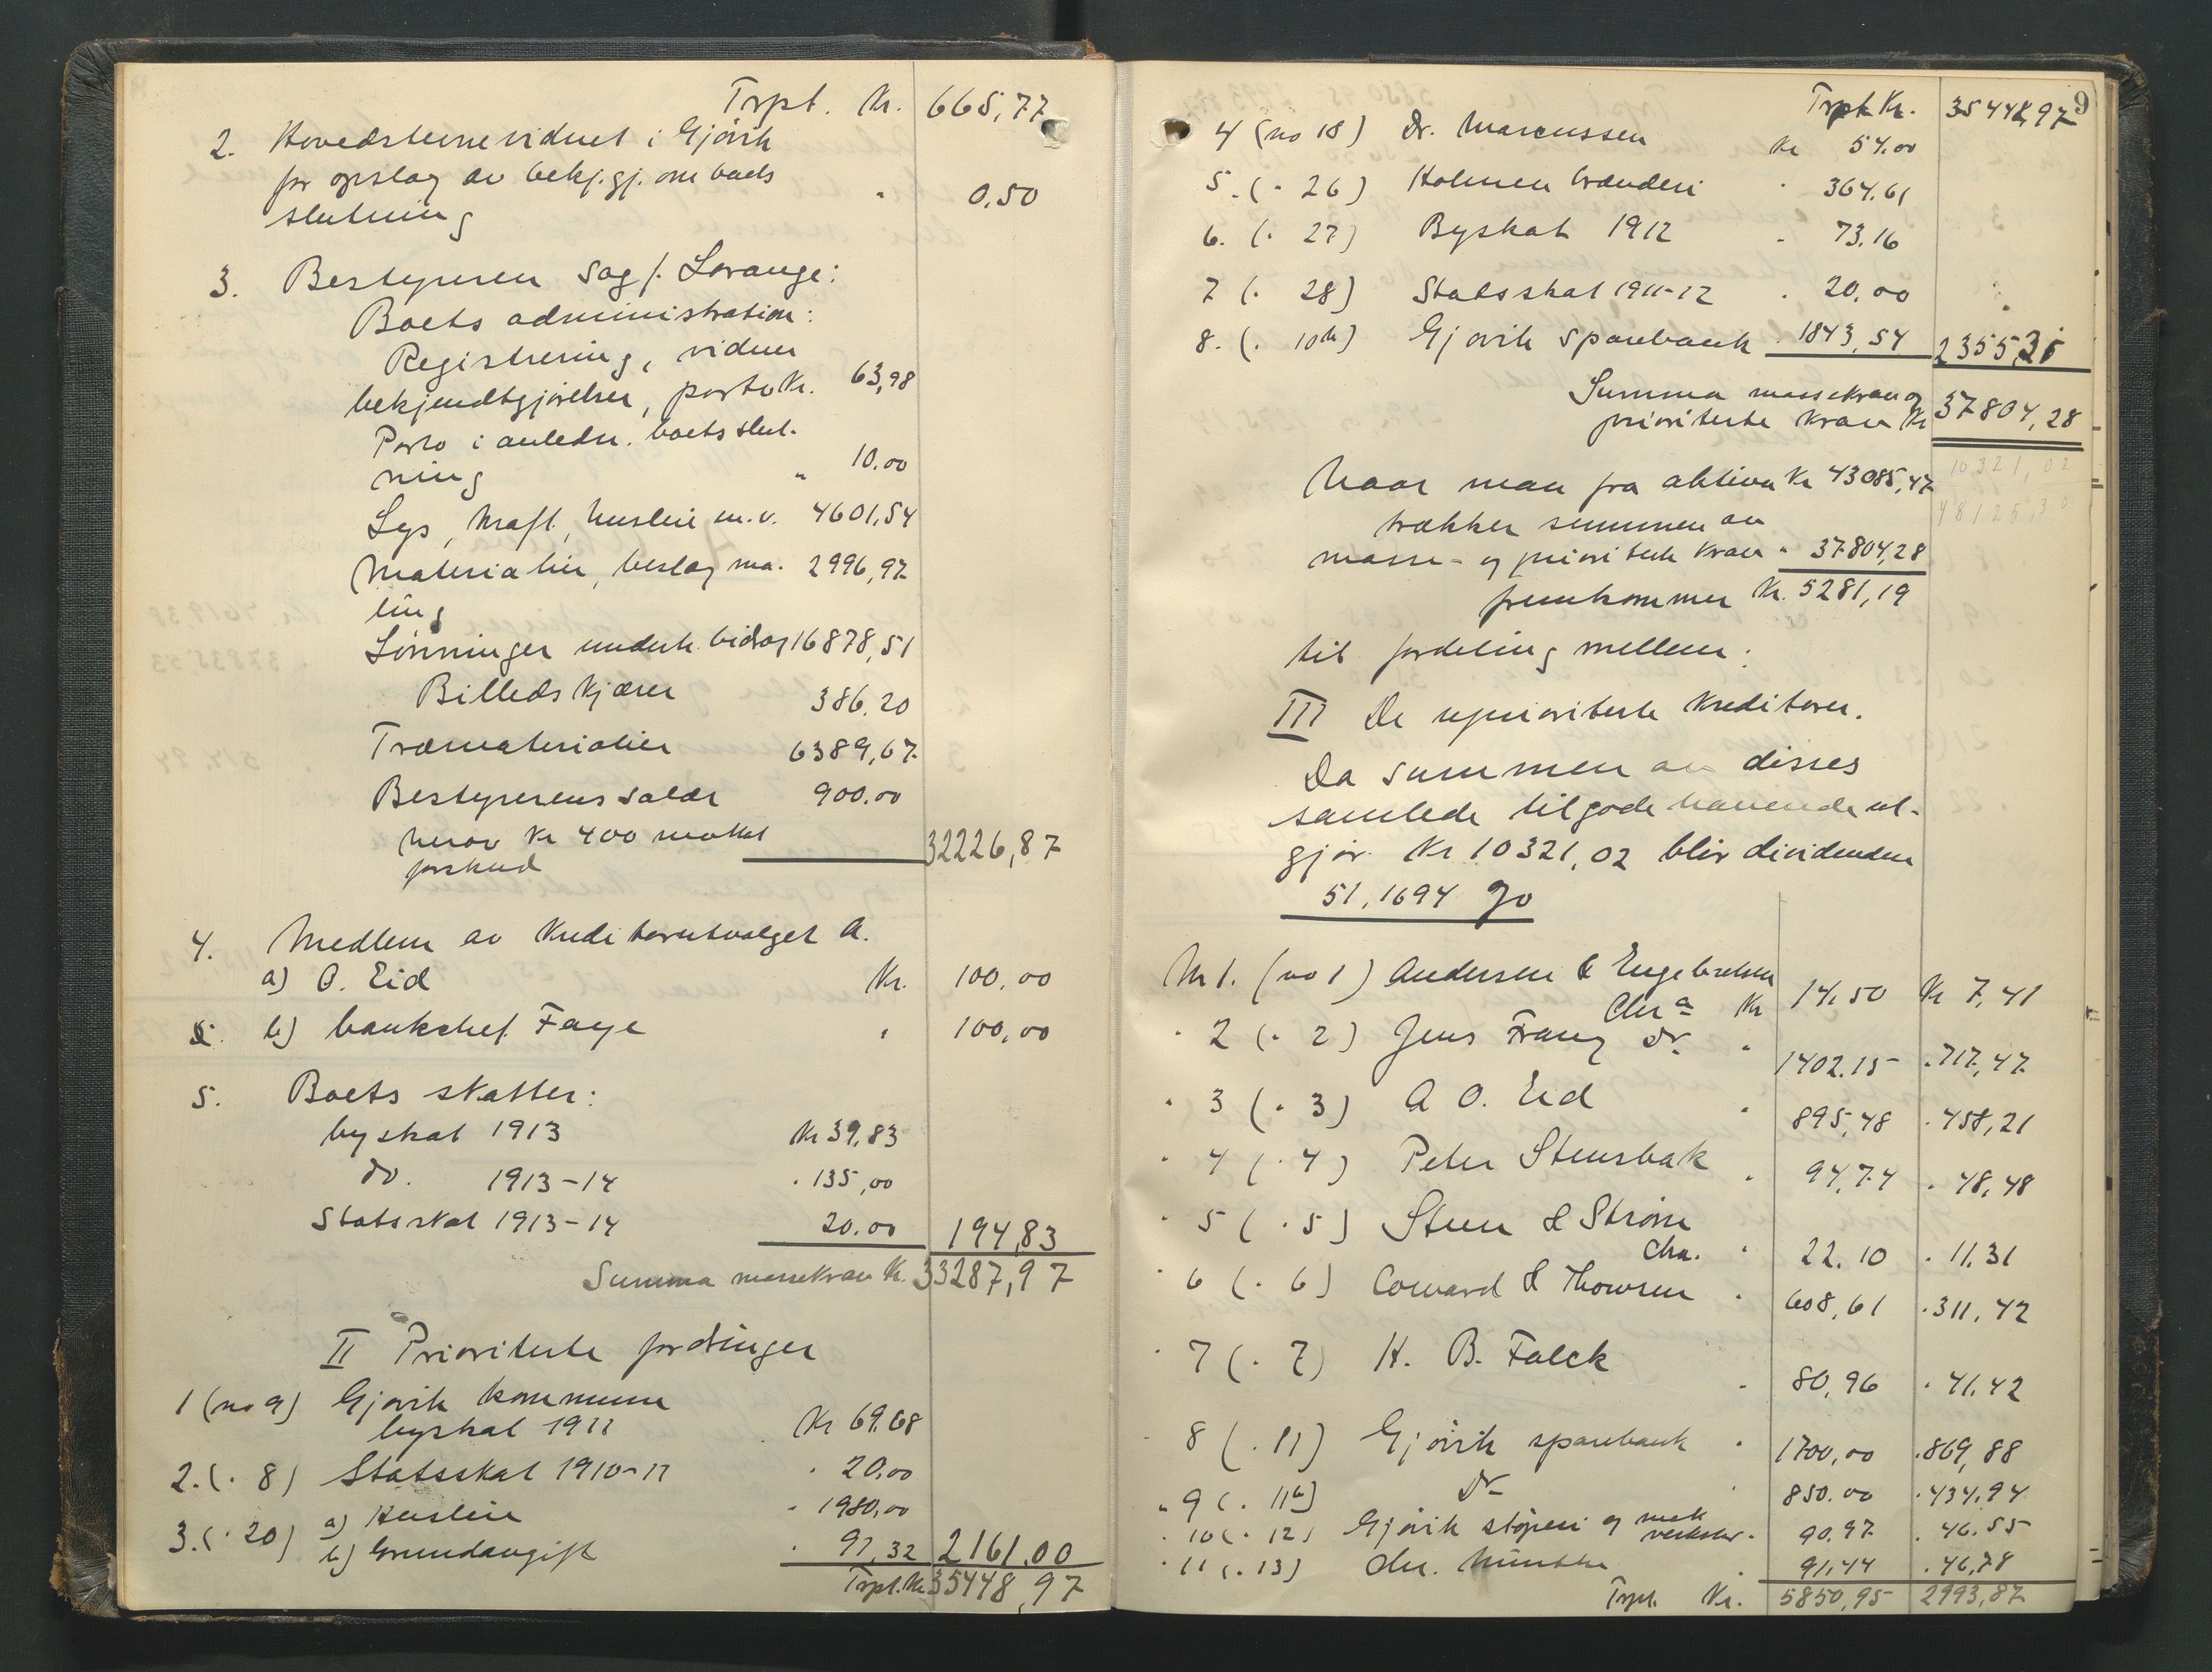 Trpt. Kr. 665,77
2. Hovedstevnevidnet i Gjøvik
for opslag av bekj.gj. om boets
slutning " 0.50
3. Bestyreren sag f. Lorange:
Boets administration:
Registrering, vidner
bekjendtgjørelser, porto Kr. 63,98
Porto i anledn. boets slut-
ning " 10.00
Lys, kraft, husleie m.v. 4601,54
Materialier, beslag ma- 2996,97
ling
Lønninger underh. bidrag 16878,51
Billedskjærer 386.20
Træmaterialier 6389,67
Bestyrerens salær 900.00
herav Kr 400 mottat 32226,87
forskud
4. Medlem av kreditorutvalget A.
a) O. Eid Kr. 100,00
b) banksjef Faye " 100,00
5. Boets skatter:
byskat 1913 Kr 39,83
do. 1913-14 " 135,00
Statsskat 1913-14 20.00 194,83
Summa massekrav Kr. 33287,97
II Prioriterte fordringer
1 (no 9) Gjøvik kommune
byskat 1911 Kr 69.68
2. (" 8) Statsskat 1910-11 " 20.00
3. (" 20) a) Husleie " 1980,00
b) Grundavgift " 91,32 2161.00
Trpt. Kr 35448,97
9
Trpt Kr. 35448,97
4 (no 18) Dr. Marcussen Kr 54.00
5. (" 26) Holmen brænderi " 364.61
6. (" 27) Byskat 1912 " 73.16
7 (" 28) Statsskat 1911-12 " 20,00
8. (" 10b) Gjøvik sparebank " 1843,54 2355,31
Summa massekrav og
prioriterte krav Kr 37804,28
10321,02
Naar man fra aktiva Kr 43085,47
48125,30
trækker summen av
masse- og prioriterte krav " 37804,28
fremkommer Kr. 5281,19
til fordeling mellem:
III De uprioriterte kreditorer.
Da summen av disses
samlede tilgodehavende ut-
gjør Kr 10321,02 blir dividenden
51,1694 %
Nr 1. (no 1) Andersen & Engebretsen
Chr.a Kr 14.50 Kr 7,41
" 2 (" 2) Jens Franz Dr. " 1402.15 " 717,47
" 3 (" 3) A O. Eid " 895,48 " 458,21
" 4 (" 4) Peter Stensbak " 94,74 " 48,48
" 5 (" 5) Steen & Strøm
Chra. " 22.10 " 11.31
" 6 (" 6) Coward & Thowsen " 608,61 " 311,42
" 7 (" 7) H. B. Falck " 80,96 " 41,42
" 8 (" 11) Gjøvik sparebank " 1700,00 " 869,88
" 9 (" 11b) Do " 850.00 " 434,94
" 10 (" 12) Gjøvik støperi og mek
verksted " 90.97 " 46.55
" 11 (" 13) Chr. Münster " 91,44 " 46,78
Trpt. Kr. 5850,95 2993,87